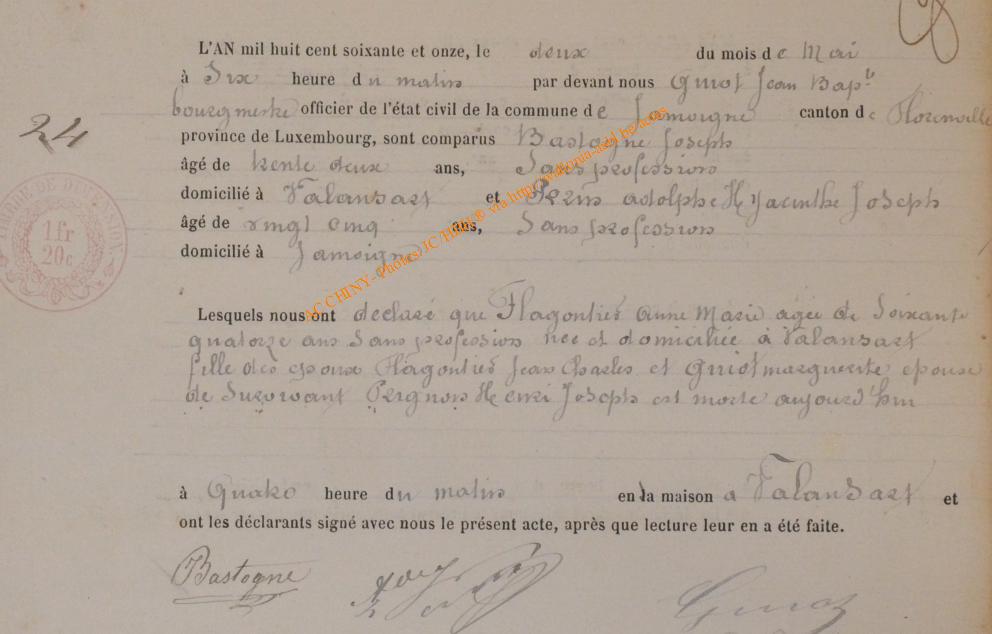 L'AN mil huit cent soixante et onze, le deux du mois de Mai
à Six heure du matin par devant nous Guiot Jean Bapte
24
bourgmestre officier de l'état civil de la commune de Jamoigne canton de Florenville
province de Luxembourg, sont comparus Bastogne Joseph
âgé de trente deux ans, Sans profession
domicilié à Valansart et Perin adolphe Hyacinthe Joseph
âgé de vingt cinq ans, Sans profession
domicilié à Jamoigne
1 fr
20 c
AC CHINY - Photos JC HIGNY ® via
Lesquels nous ont declaré que Flagontier anne Marie agée de Soixante
quatorze ans Sans profession née et domiciliée à Valansart
fille des epoux Flagontier Jean Charles et Guiot marguerite epouse
de Survivant Pergnon Henri Joseph est morte aujourd'hui
à Quatre heure du matin en la maison a Valansart et
ont les déclarants signé avec nous le présent acte, après que lecture leur en a été faite.
Bastogne
Guiot